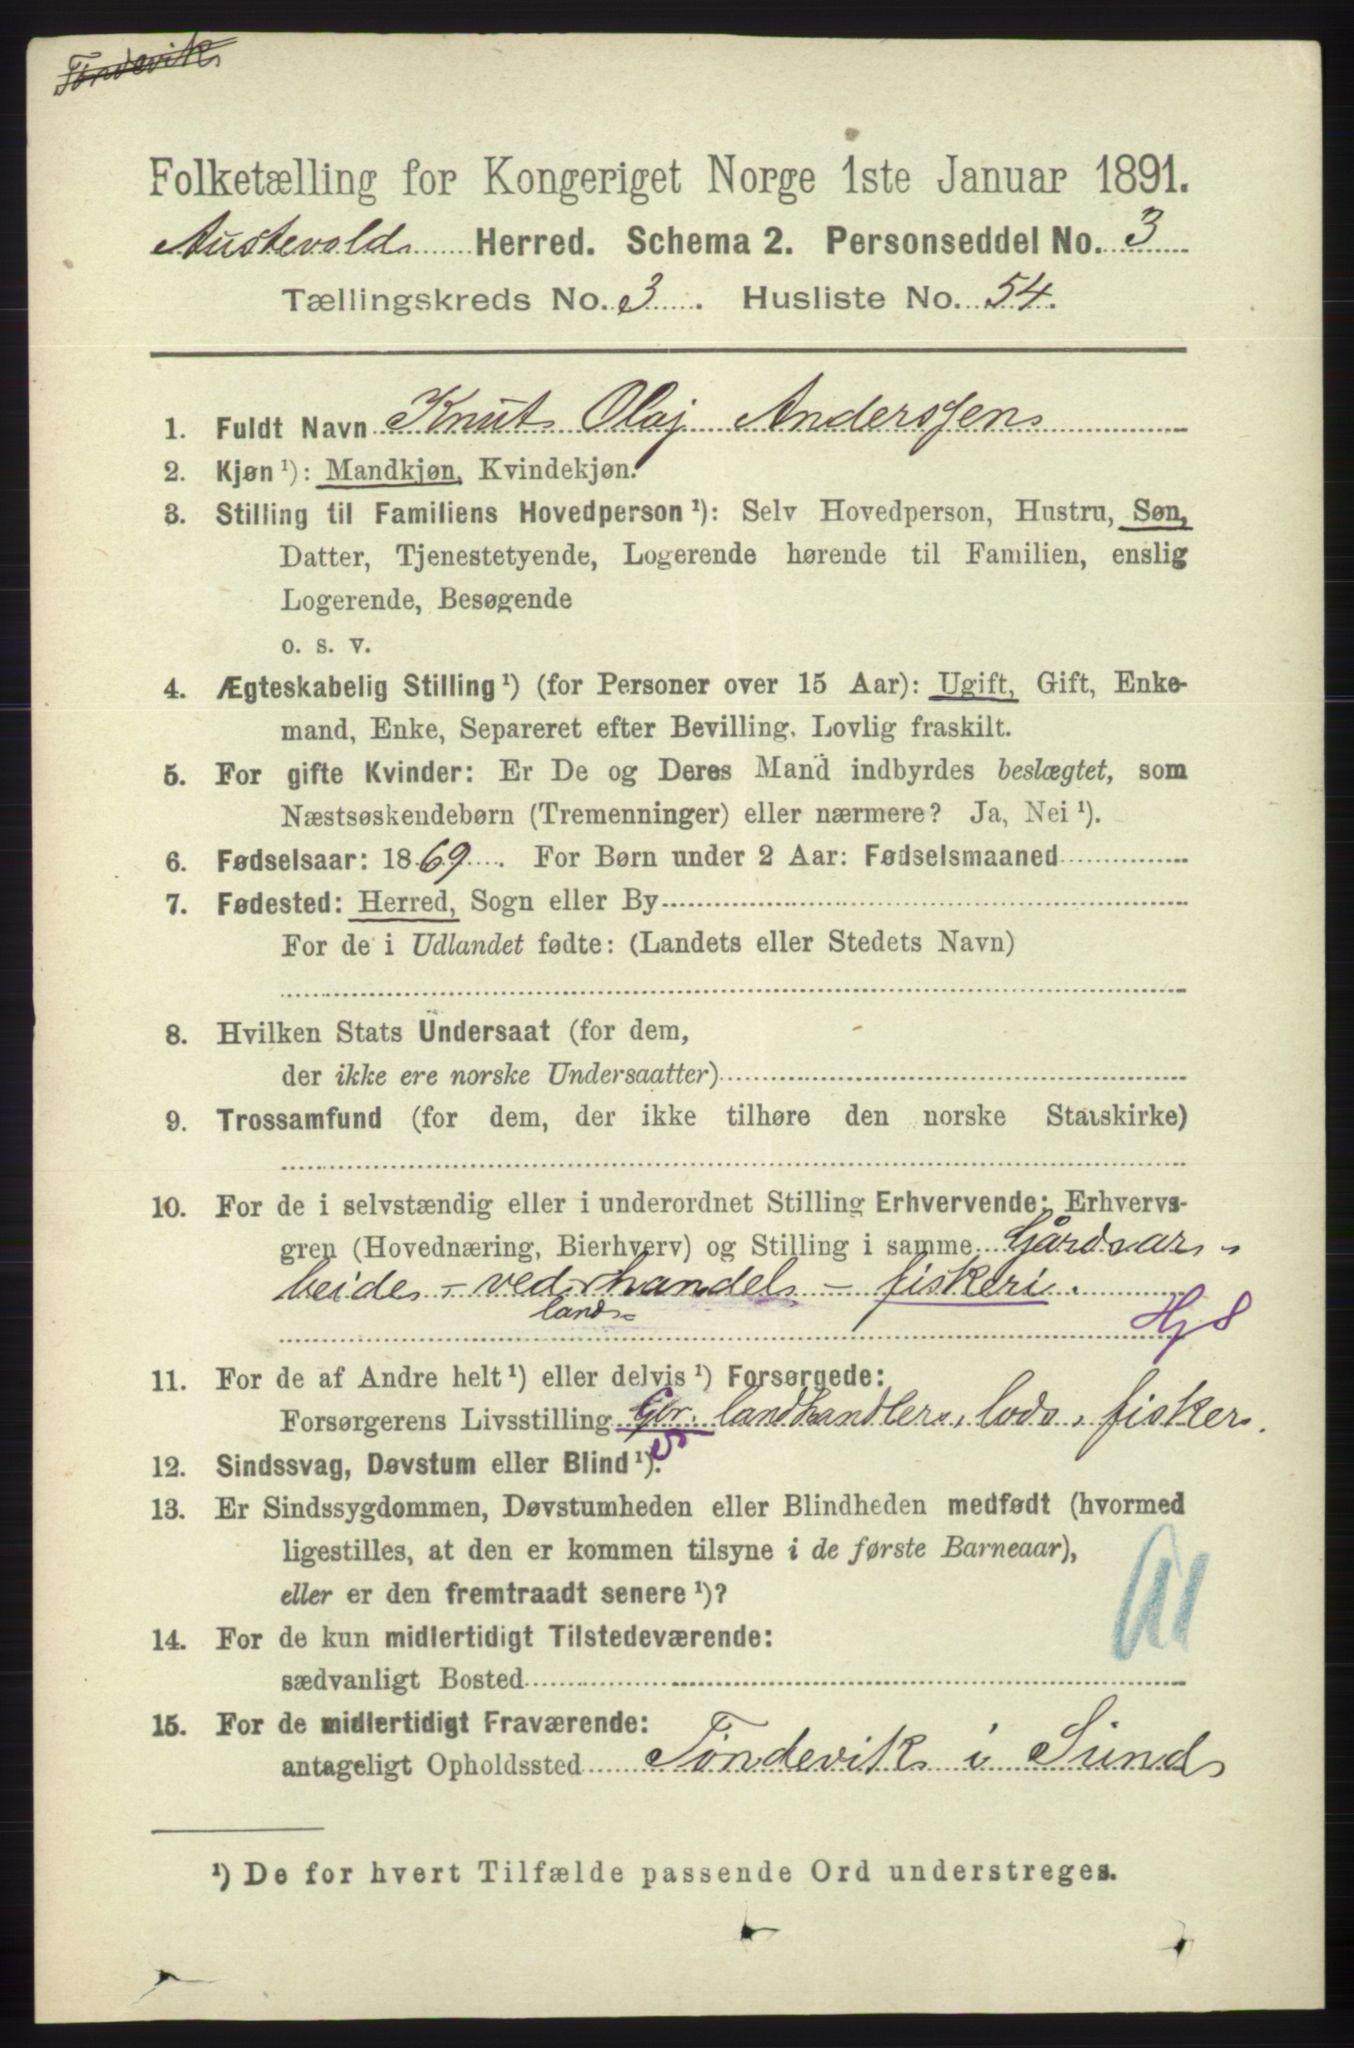 Töndevik
Folketælling for Kongeriget Norge 1ste Januar 1891.
Austevold Herred. Schema 2. Personseddel No. 3
Tællingskreds No. 3. Husliste No. 54.
1. Fuldt Navn Knut Olaj Anderssen
2. Kjøn ¹): Mandkjøn, Kvindekjøn.
3. Stilling til Familiens Hovedperson ¹): Selv Hovedperson, Hustru, Søn,
Datter, Tjenestetyende, Logerende hørende til Familien, enslig
Logerende, Besøgende
o. s. v.
4. Ægteskabelig Stilling ¹) (for Personer over 15 Aar): Ugift, Gift, Enke-
mand, Enke, Separeret efter Bevilling. Lovlig fraskilt.
5. For gifte Kvinder: Er De og Deres Mand indbyrdes beslægtet, som
Næstsøskendebørn (Tremenninger) eller nærmere? Ja, Nei ¹).
6. Fødselsaar: 1869. For Børn under 2 Aar: Fødselsmaaned
7. Fødested: Herred, Sogn eller By
For de i Udlandet fødte: (Landets eller Stedets Navn)
8. Hvilken Stats Undersaat (for dem,
der ikke ere norske Undersaatter)
9. Trossamfund (for dem, der ikke tilhøre den norske Statskirke)
10. For de i selvstændig eller i underordnet Stilling Erhvervende: Erhvervs-
gren (Hovednæring, Bierhverv) og Stilling i samme Gårdsar-
beide - ved handel - fiskeri.
land- Hj 8
11. For de af Andre helt ¹) eller delvis ¹) Forsørgede:
Forsørgerens Livsstilling Gbr. landhandler, lods, fisker.
12. Sindssvag, Døvstum eller Blind ¹).
13. Er Sindssygdommen, Døvstumheden eller Blindheden medfødt (hvormed
ligestilles, at den er kommen tilsyne i de første Barneaar),
eller er den fremtraadt senere ¹)?
14. For de kun midlertidigt Tilstedeværende:
sædvanligt Bosted
15. For de midlertidigt Fraværende:
antageligt Opholdssted Töndevik i Sund
¹) De for hvert Tilfælde passende Ord understreges.